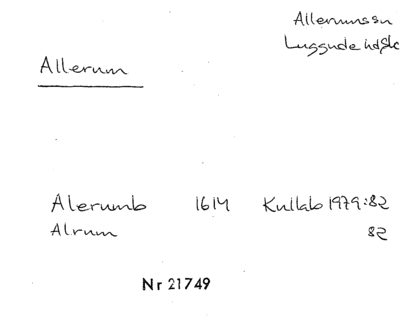 Allerums sn
Luggude hd Sk
Allerum
Alerumb 1614 Kullab 1979:82
Alrum 82
Nr 21749